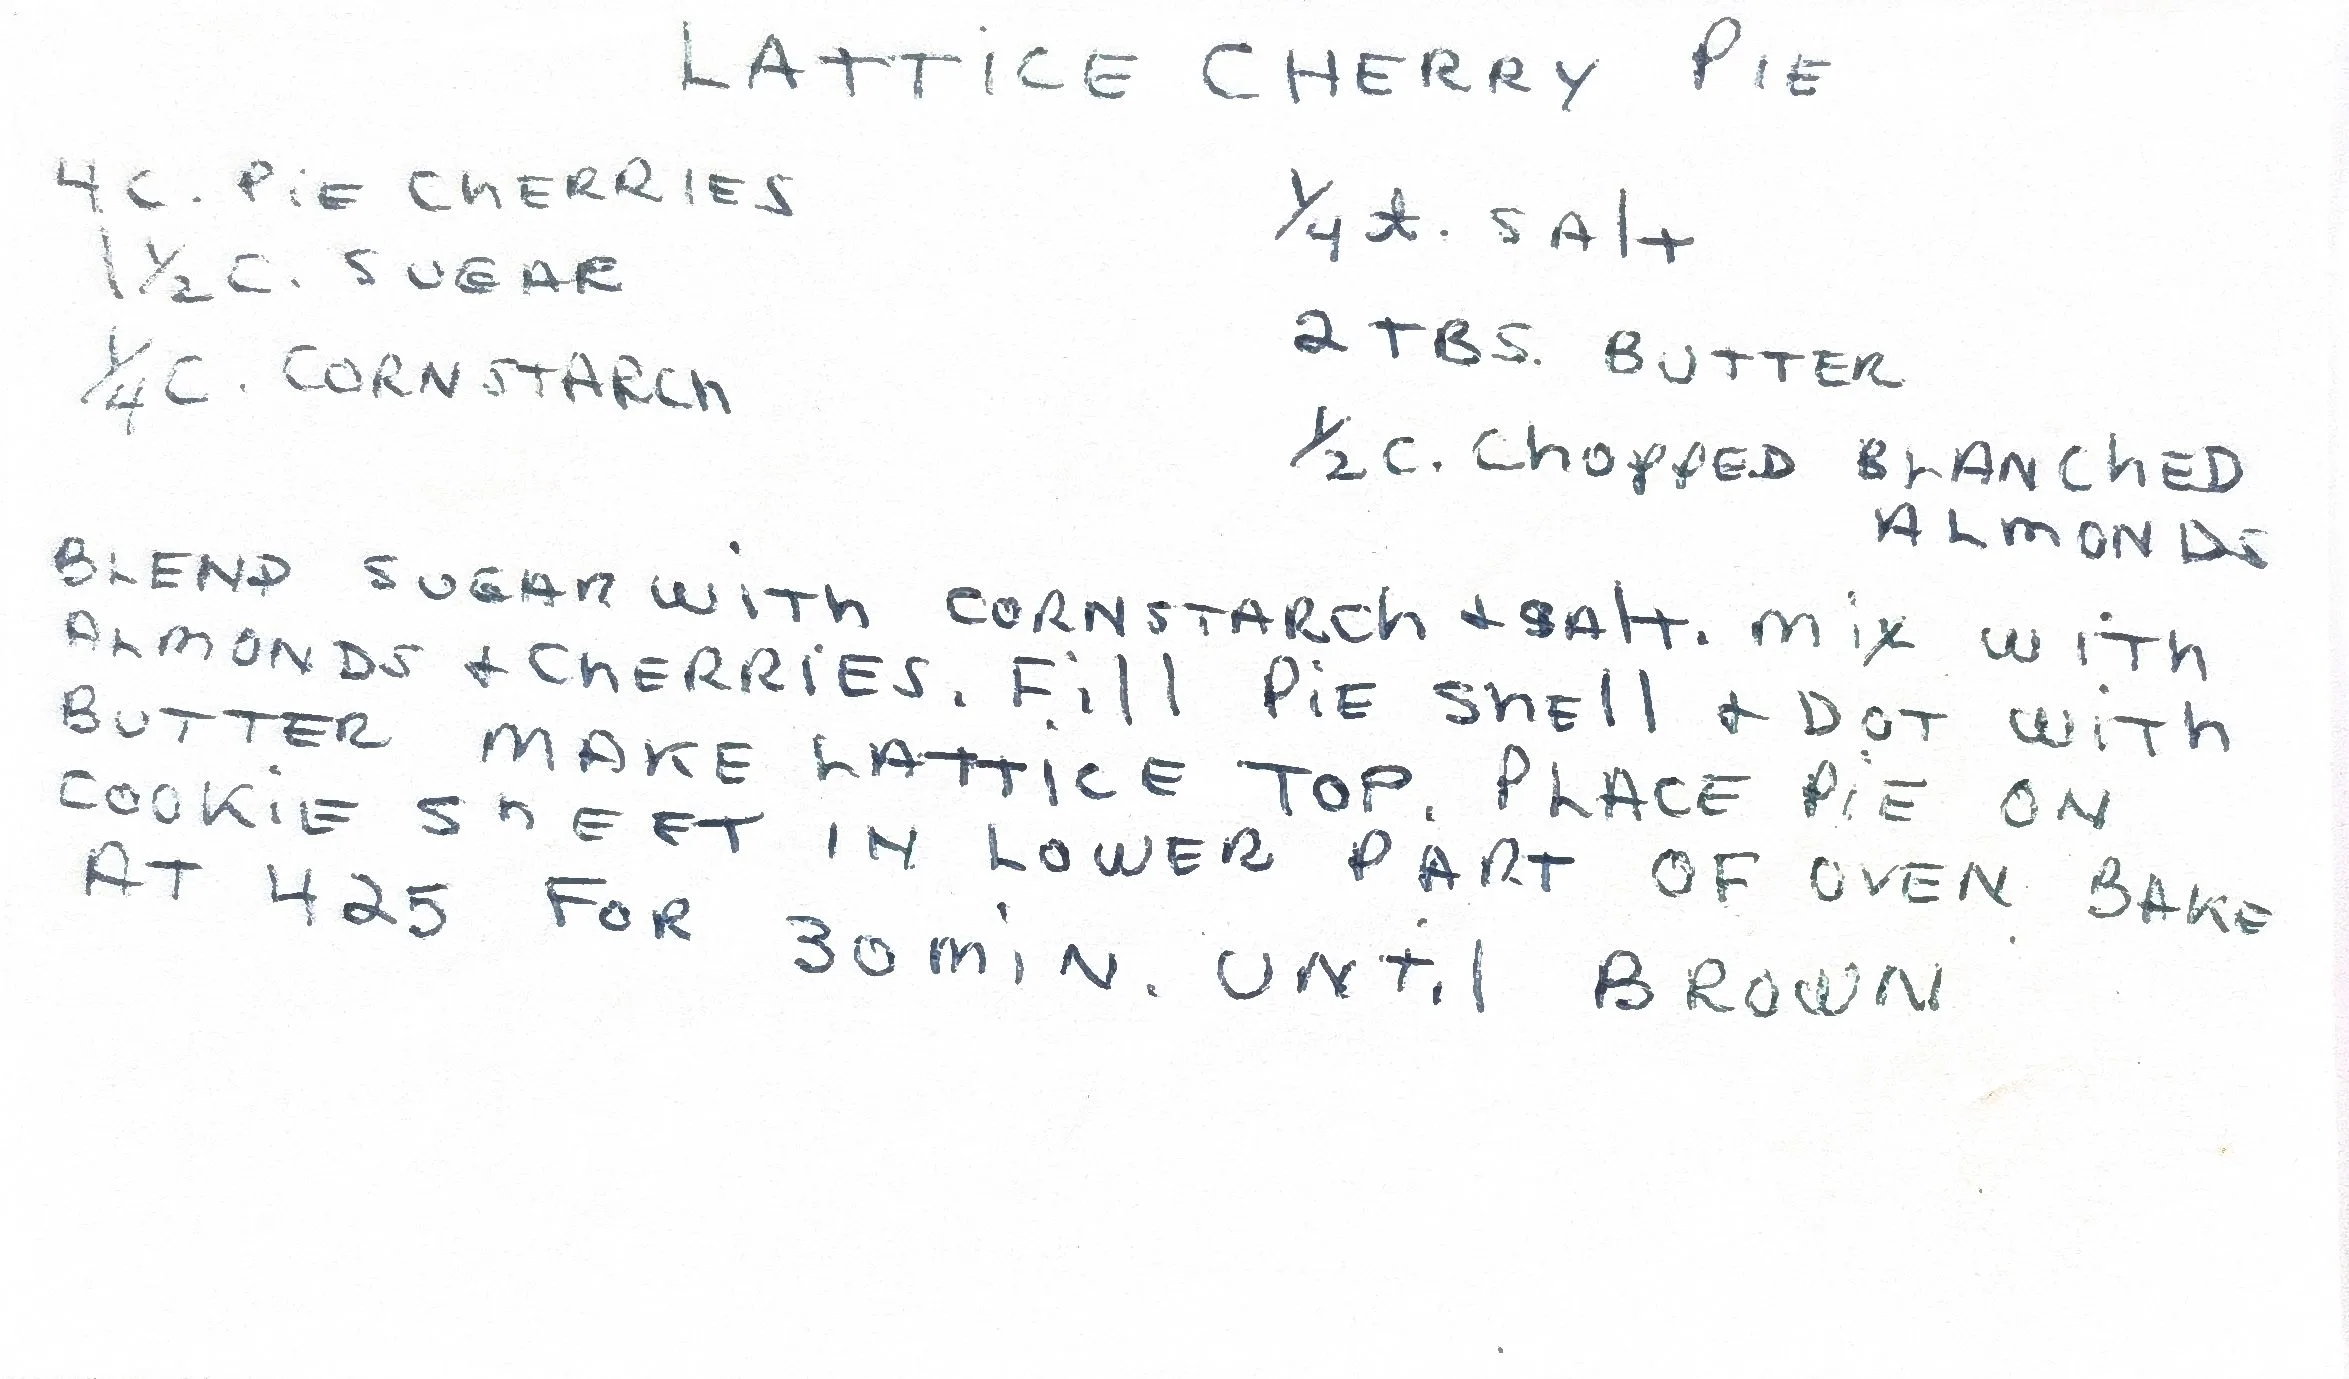 LATTICE CHERRY PIE
4 C. PIE CHERRIES
1 1/2 C. SUGAR
1/4 C. CORNSTARCH
1/4 t. SALT
2 TBS. BUTTER
1/2 C. CHOPPED BLANCHED
ALMONDS
BLEND SUGAR WITH CORNSTARCH + SALT. MIX WITH
ALMONDS + CHERRIES. FILL PIE SHELL + DOT WITH
BUTTER MAKE LATTICE TOP. PLACE PIE ON
COOKIE SHEET IN LOWER PART OF OVEN. BAKE
AT 425 FOR 30 MIN. UNTIL BROWN